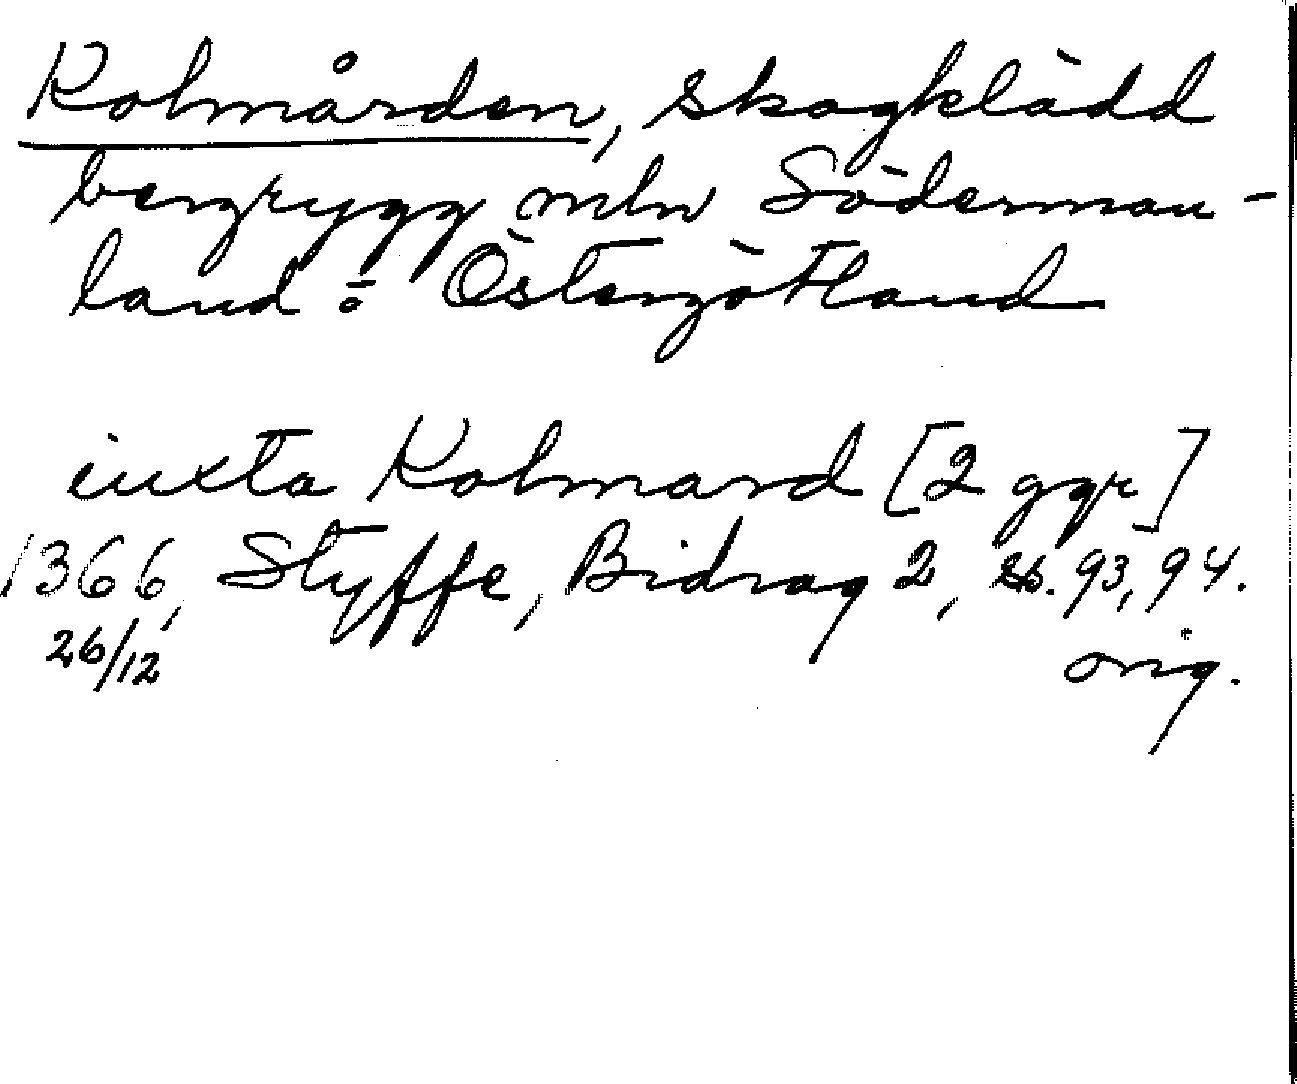 Kolmården, skogklädd
bergrygg mln Söderman-
land o Östergötland
iuxta Kolmard [2 ggr]
1366, Styffe, Bidrag 2, ss. 93, 94.
26/12 orig.